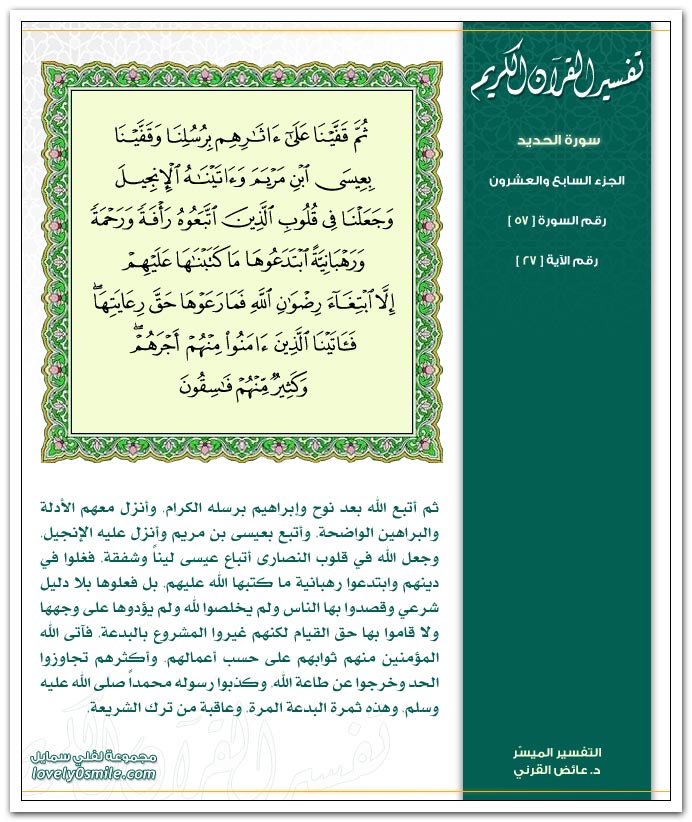 تفسير القرآن الكريم
سورة الحديد
الجزء السابع والعشرون
رقم السورة [ ٥٧ ]
رقم الآية [ ٢٧ ]
ثُمَّ قَفَّيْنَا عَلَىٰٓ ءَاثَٰرِهِم بِرُسُلِنَا وَقَفَّيْنَا
بِعِيسَى ٱبْنِ مَرْيَمَ وَءَاتَيْنَٰهُ ٱلْإِنجِيلَ
وَجَعَلْنَا فِى قُلُوبِ ٱلَّذِينَ ٱتَّبَعُوهُ رَأْفَةً وَرَحْمَةً
وَرَهْبَانِيَّةً ٱبْتَدَعُوهَا مَا كَتَبْنَٰهَا عَلَيْهِمْ
إِلَّا ٱبْتِغَآءَ رِضْوَٰنِ ٱللَّهِ فَمَا رَعَوْهَا حَقَّ رِعَايَتِهَا ۖ
فَـَٔاتَيْنَا ٱلَّذِينَ ءَامَنُوا۟ مِنْهُمْ أَجْرَهُمْ ۖ
وَكَثِيرٌ مِّنْهُمْ فَٰسِقُونَ
ثم أتبع الله بعد نوح وإبراهيم برسله الكرام، وأنزل معهم الأدلة
والبراهين الواضحة، وأتبع بعيسى بن مريم وأنزل عليه الإنجيل،
وجعل الله في قلوب النصارى أتباع عيسى ليناً وشفقة، فغلوا في
دينهم وابتدعوا رهبانية ما كتبها الله عليهم، بل فعلوها بلا دليل
شرعي وقصدوا بها الناس ولم يخلصوا لله ولم يؤدوها على وجهها
ولا قاموا بها حق القيام لكنهم غيروا المشروع بالبدعة، فآتى الله
المؤمنين منهم ثوابهم على حسب أعمالهم، وأكثرهم تجاوزوا
الحد وخرجوا عن طاعة الله، وكذبوا رسوله محمداً صلى الله عليه
وسلم، وهذه ثمرة البدعة المرة، وعاقبة من ترك الشريعة.
التفسير الميسّر
د. عائض القرني
مجموعة لفلي سمايل
lovely0smile.com
تفسير القرآن الكريم